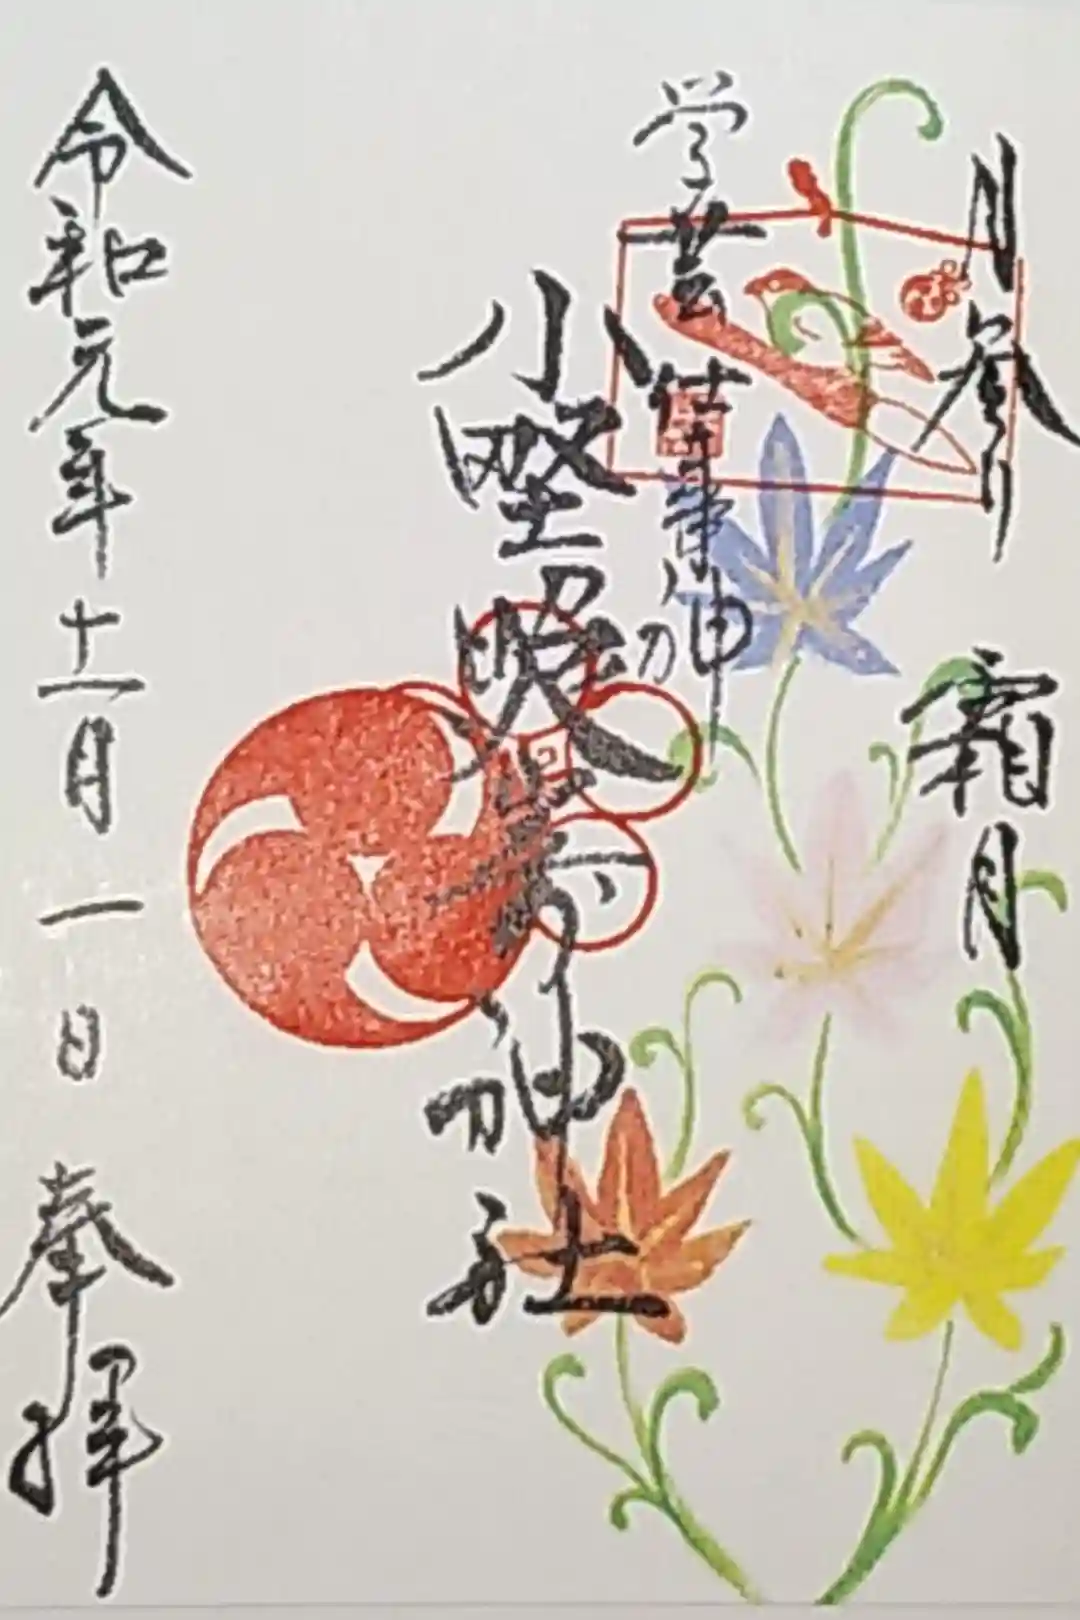 月参り 霜月
学芸 仕事神
小埜照崎神社
令和元年十一月一日 奉拝